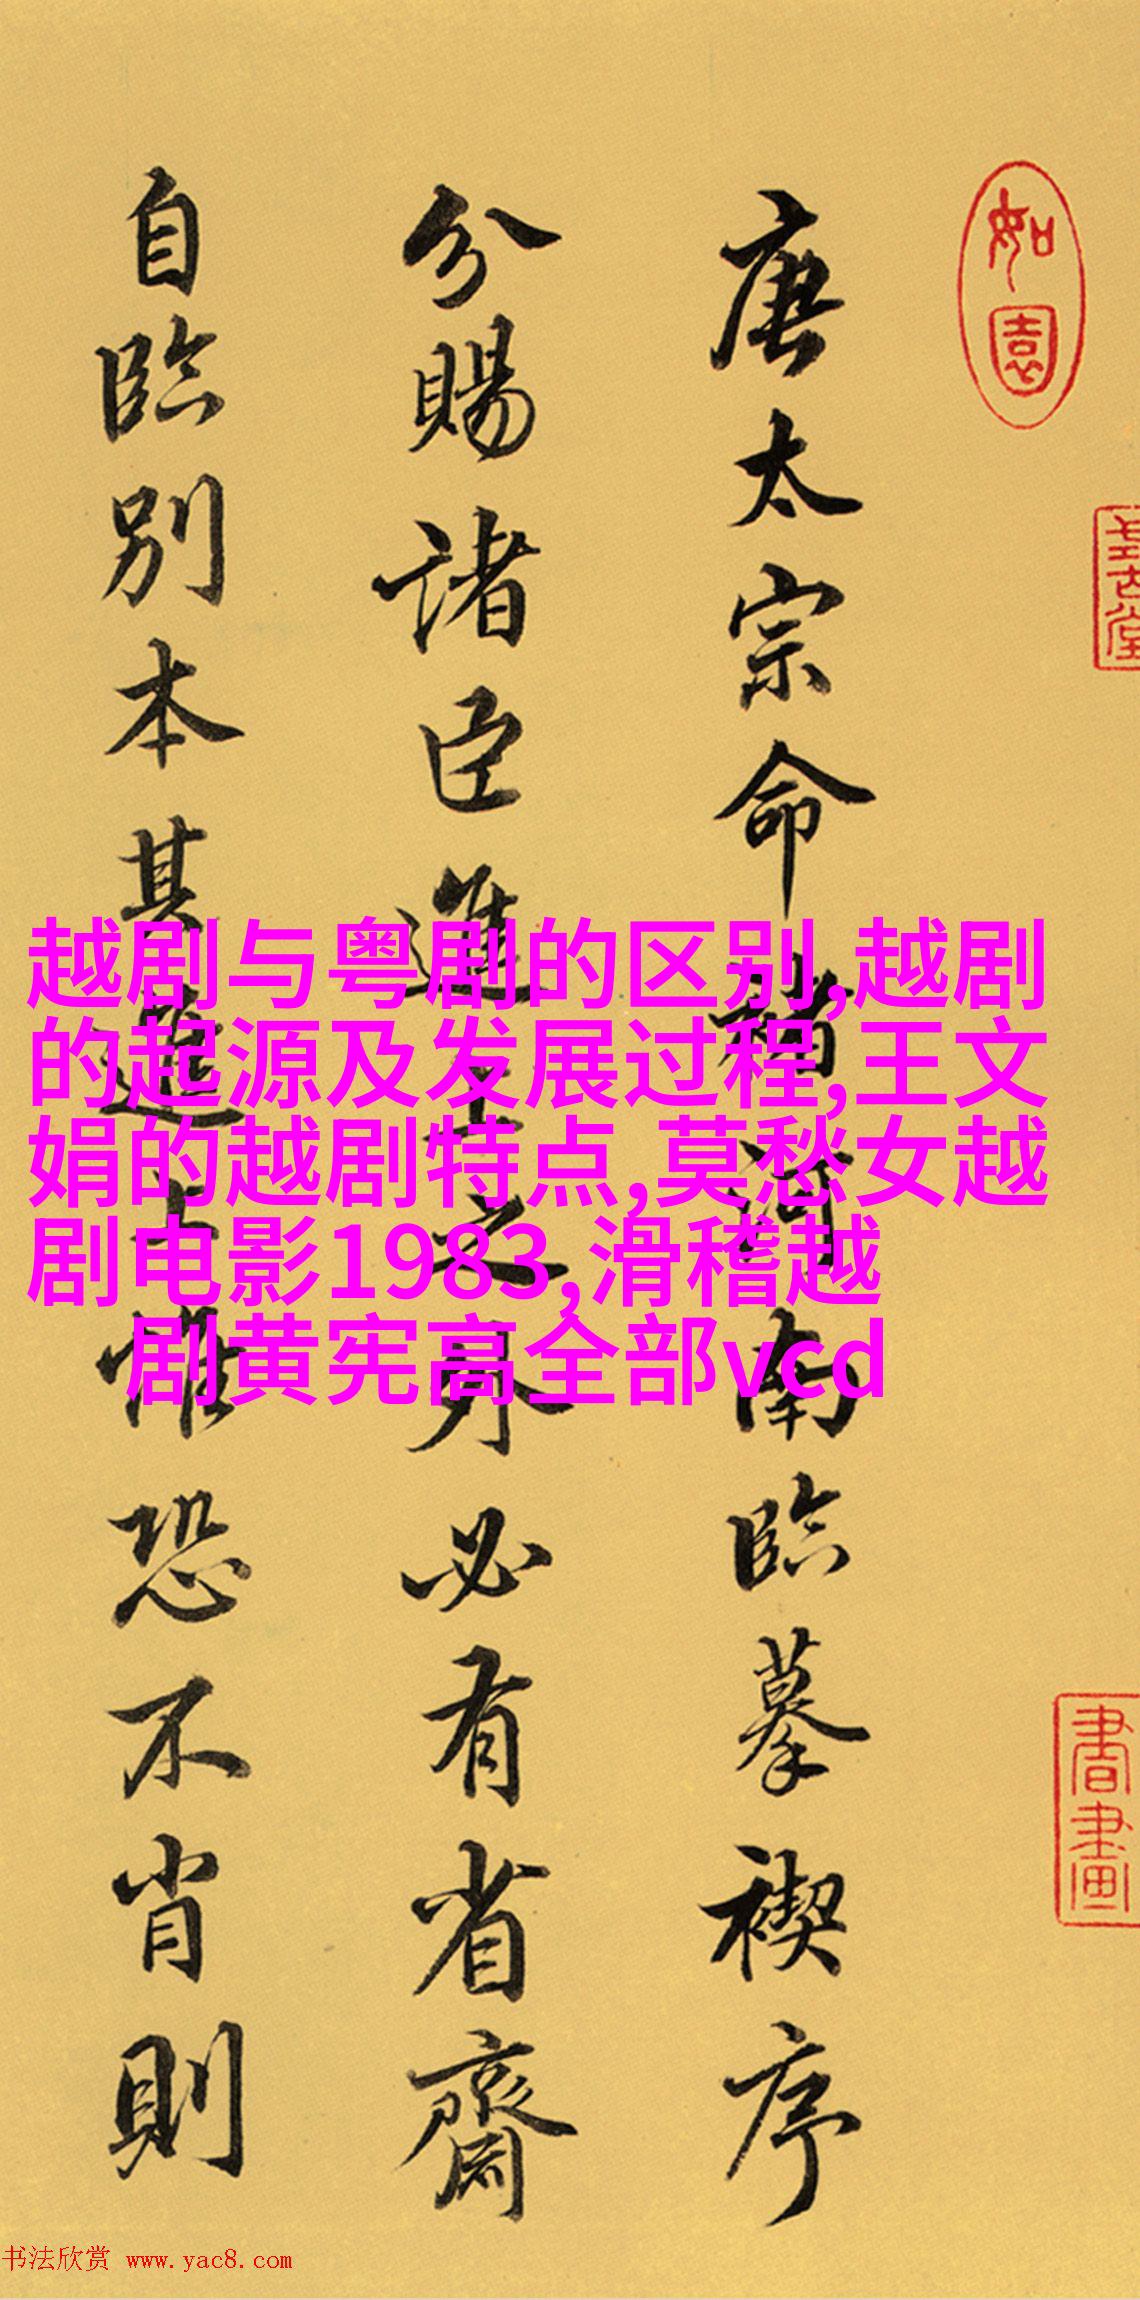 如園
書畫
唐太宗命褚河南臨摹禊序
分賜諸臣進上之外必有省齋
自臨別本其進上惟恐不肖則
越剧与粤剧的区别,越剧
的起源及发展过程,王文
娟的越剧特点,莫愁女越
剧电影1983,滑稽越
剧黄宪高全部vcd
书法欣赏 www.yac8.com